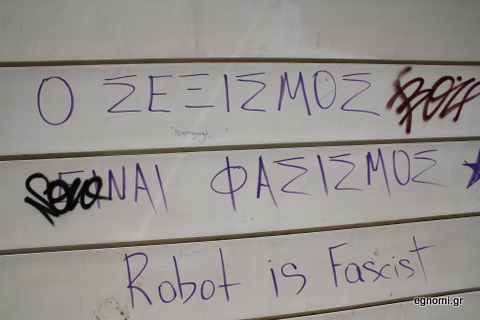 Ο ΣΕΞΙΣΜΟΣ
ΕΙΝΑΙ ΦΑΣΙΣΜΟΣ
Robot is Fascist
egnomi.gr